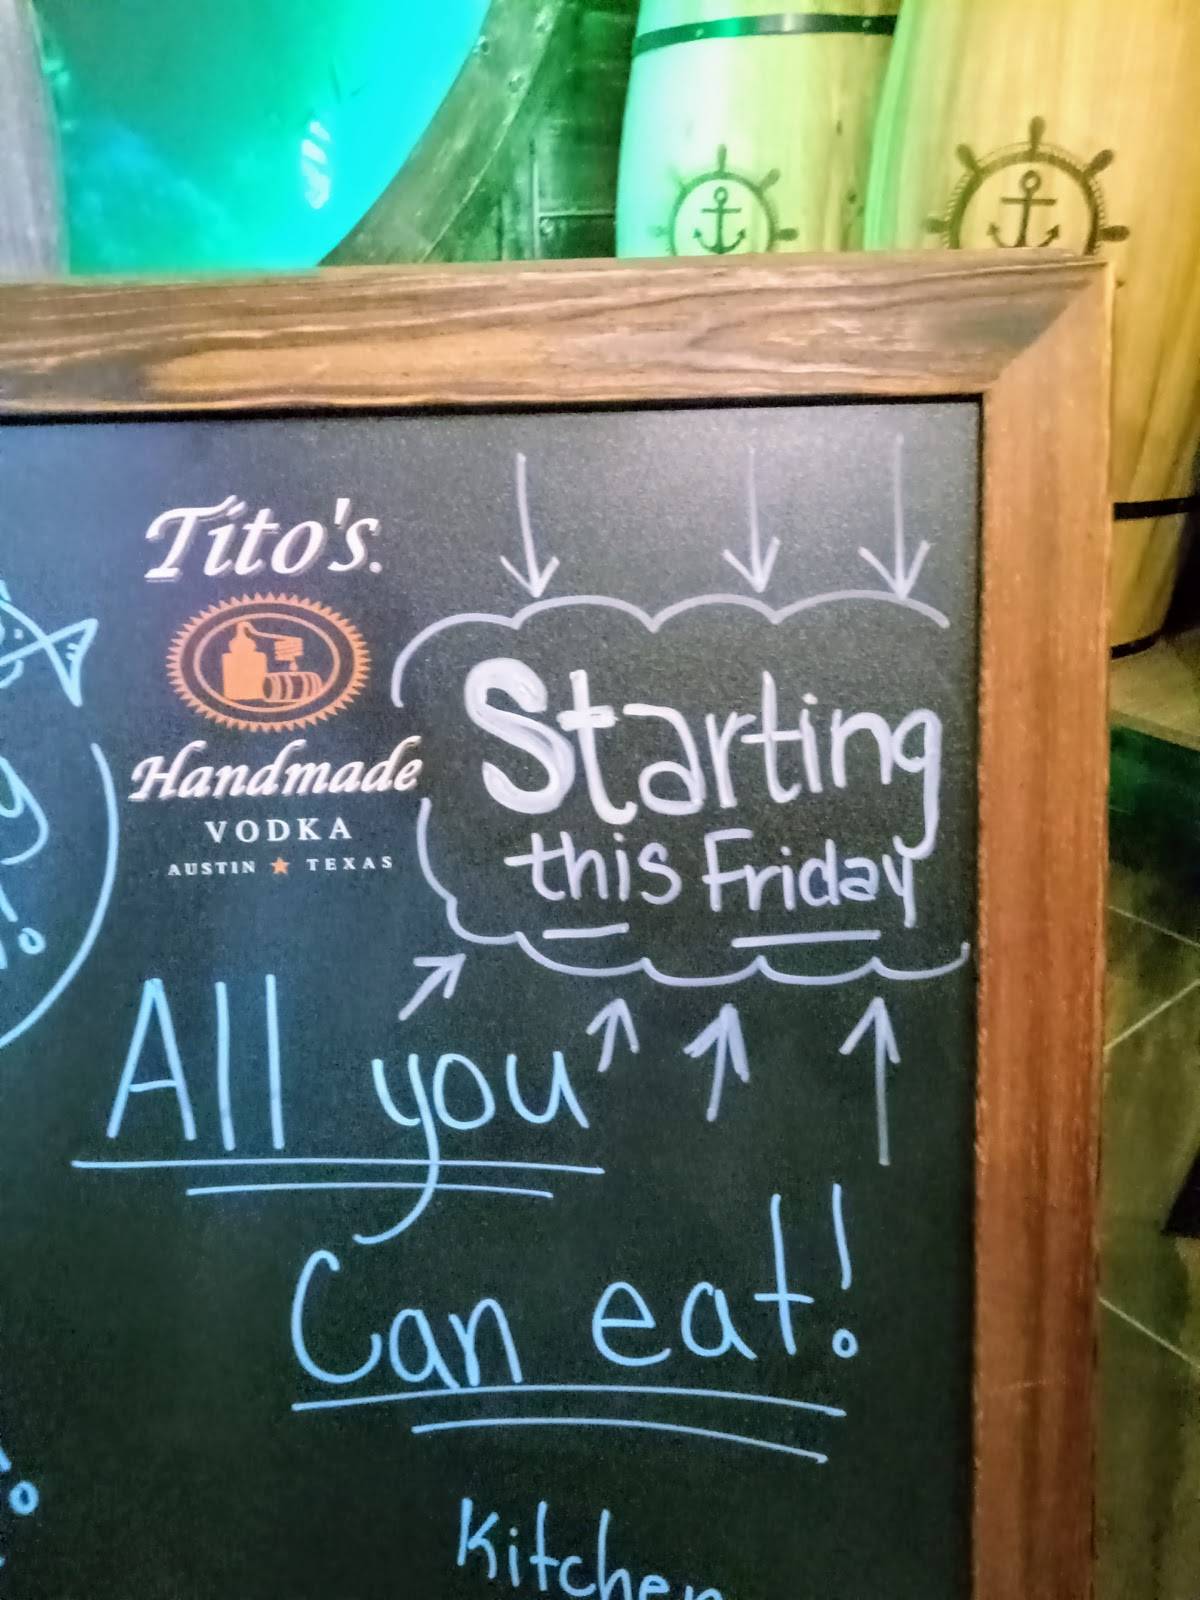 Tito's.
Handmade
VODKA
AUSTIN ★ TEXAS
Starting
this Friday
All you
Can eat!
Kitchen